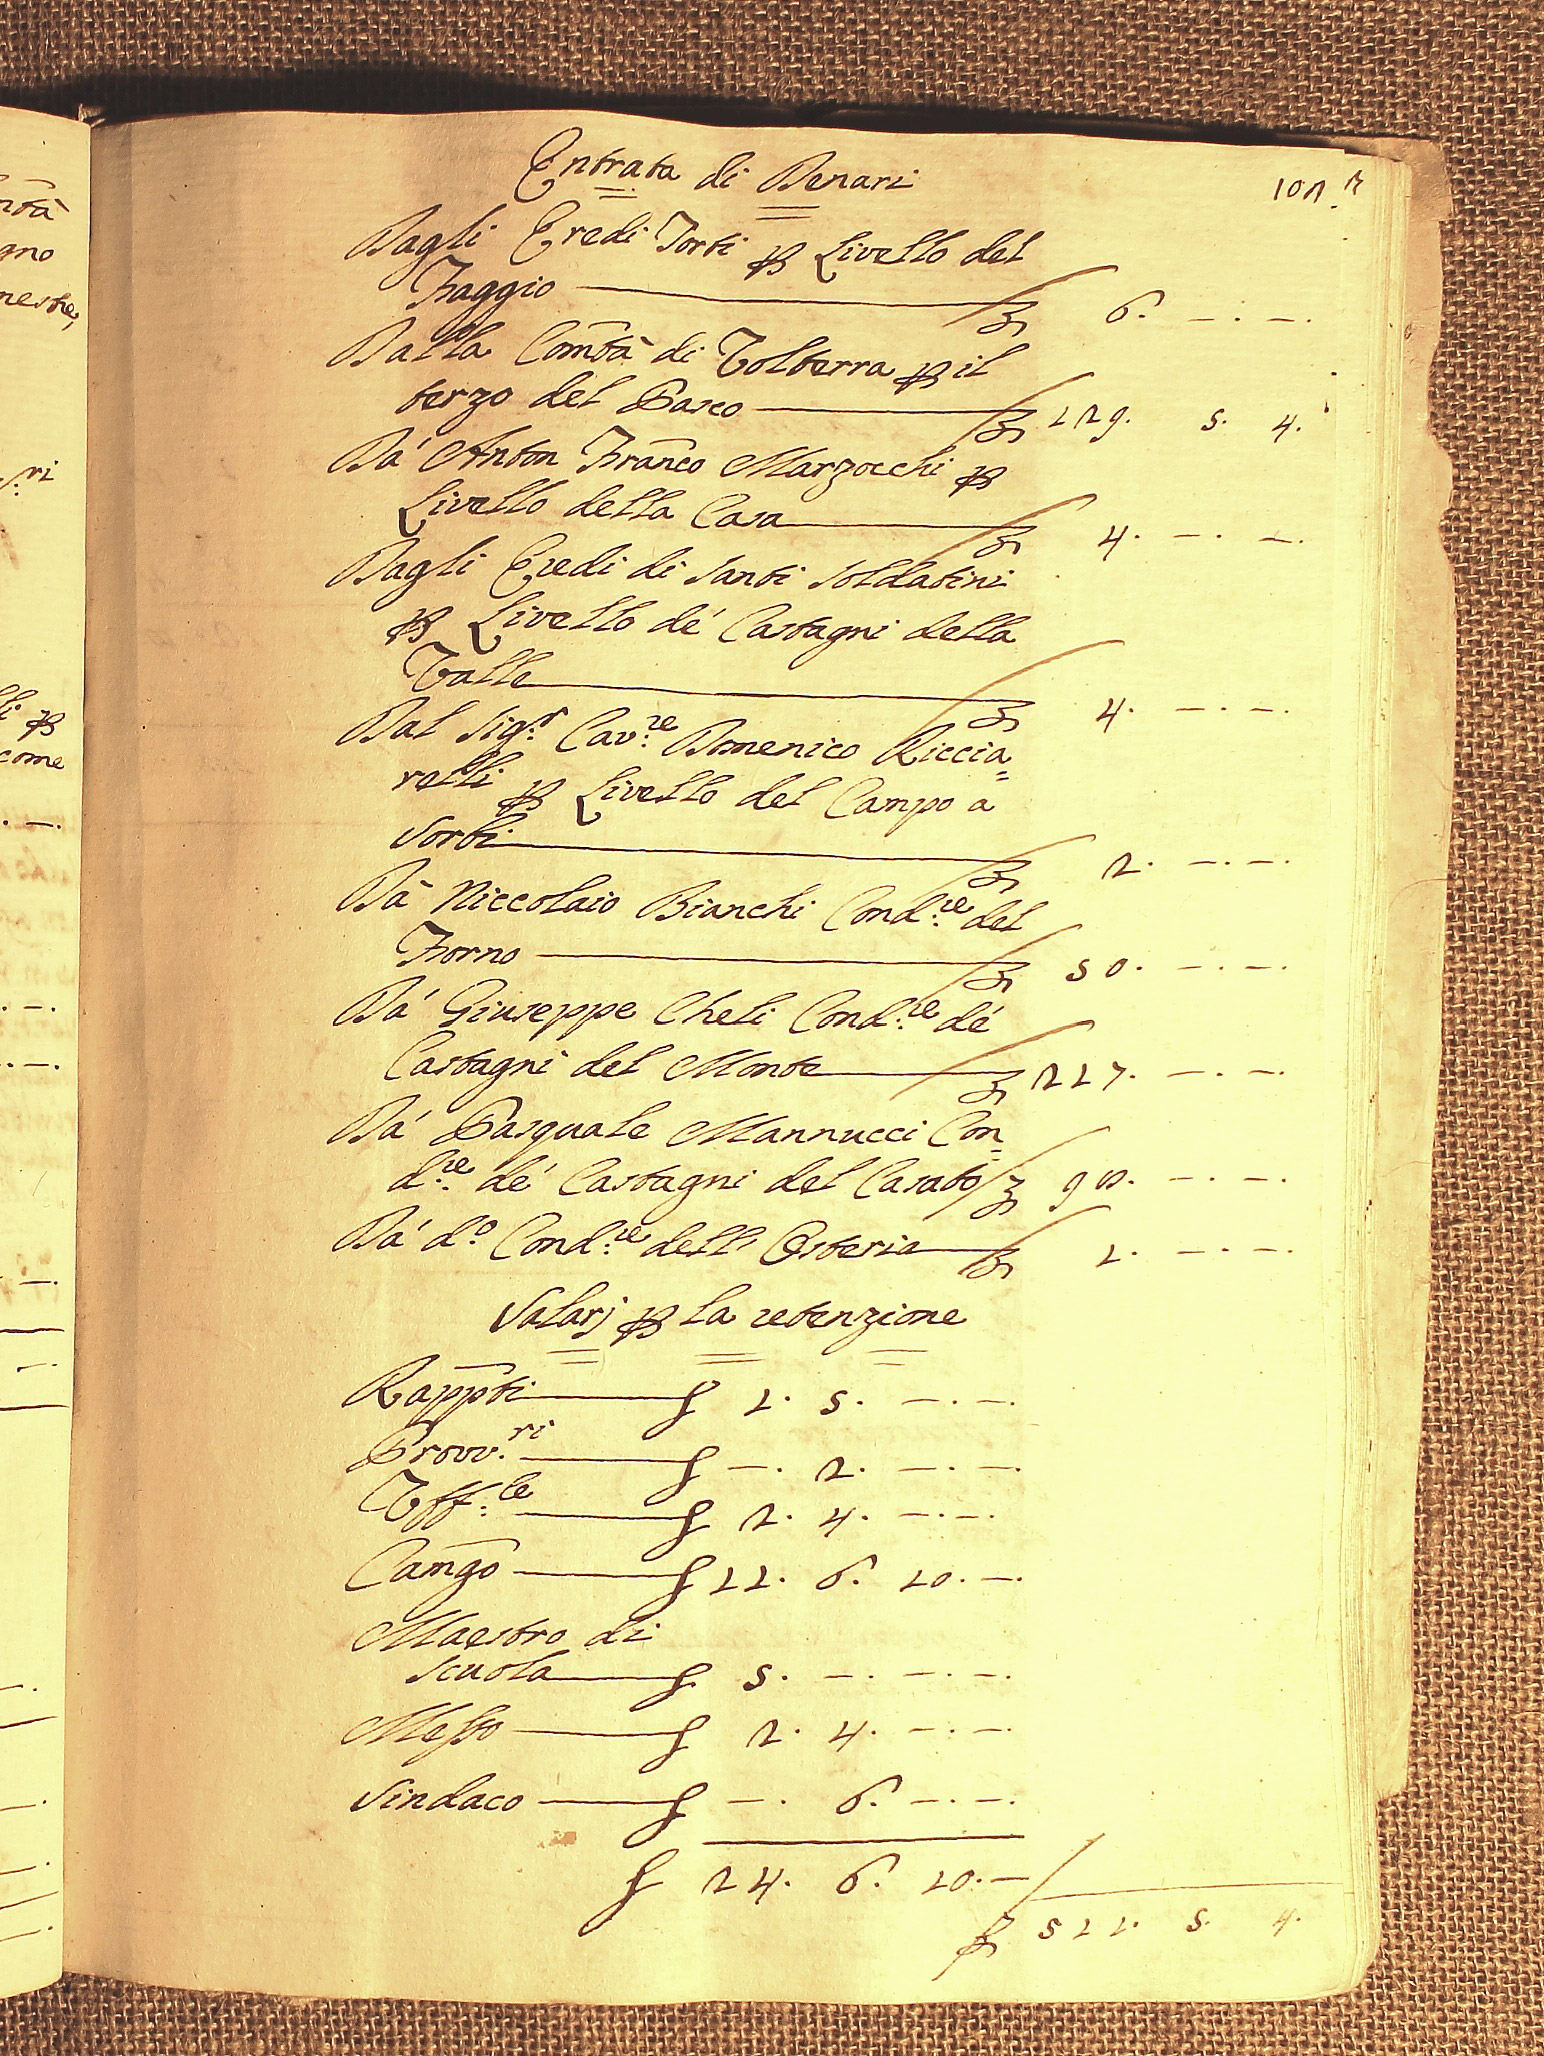 Entrata di Denari
102.
Dagli Eredi Torti ꝑ Livello del
Faggio — 6. —. —.
Dalla Comtà di Volterra ꝑ il
terzo del Pasco — 129. 5. 4.
Dà Anton Franco Marzocchi ꝑ
Livello della Casa — 4. —. —.
Dagli Eredi di Santi Soldatini
ꝑ Livello dé Castagni della
Valle — 4. —. —.
Dal Sig.r Cav.re Domenico Riccia=
relli ꝑ Livello del Campo a
Sorbi — 2. —. —.
Dà Niccolaio Bianchi Cond.re del
Forno — 50. —. —.
Dà Giuseppe Cheli Cond.re dé
Castagni del Monte — 217. —. —.
Dà Pasquale Mannucci Con=
d.re dé Castagni del Casato 98. —. —.
Dà d.o Cond.re dell' Osteria — 1. —. —.
Salarj ꝑ la retenzione
Rappti — 1. 5. —. —.
Provv.ri — —. 2. —. —.
Uff.le — 2. 4. —. —.
Camgo — 11. 6. 10. —.
Maestro di
scuola — 5. —. —. —.
Messo — 2. 4. —. —.
Sindaco — —. 6. —. —.
24. 6. 10. —
511. 5. 4.